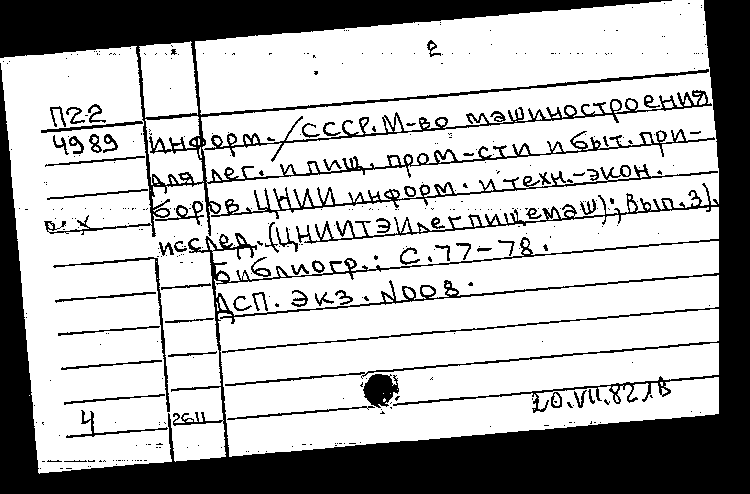 2
П22
4989 информ. / СССР. М-во машиностроения
для лег. и пищ. пром-сти и быт. при-
боров. ЦНИИ информ. и техн.-экон.
исслед. (ЦНИИТЭИлегпищемаш); Вып. 3).
Библиогр.: С. 77-78.
ДСП. Экз. N008.
4 2611
20.VII.82